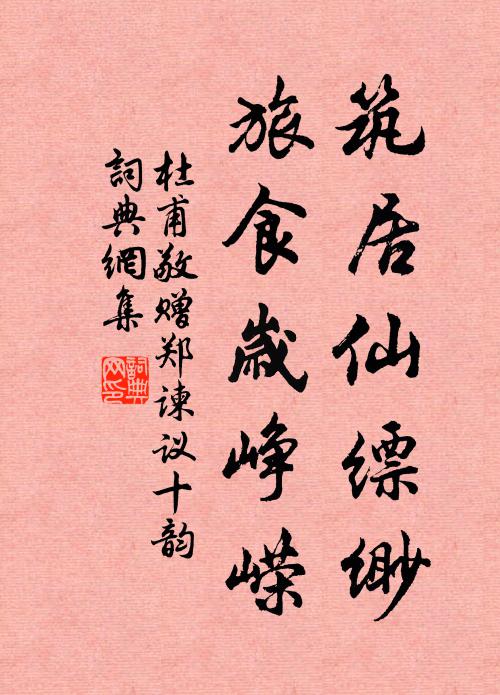 筑居仙缥缈
旅食岁峥嵘
杜甫敬赠郑谏议十韵
詞典網集
詞典网印